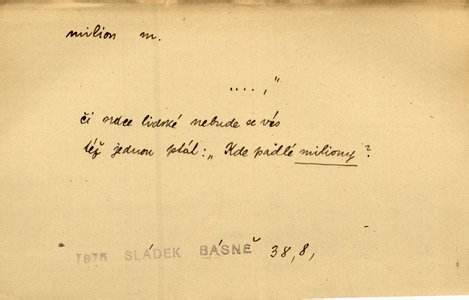 milion m.
....,"
či srdce lidské nebude se vás
též jednou ptát: „Kde padlé miliony?
1875 SLÁDEK BÁSNĚ 38,8,